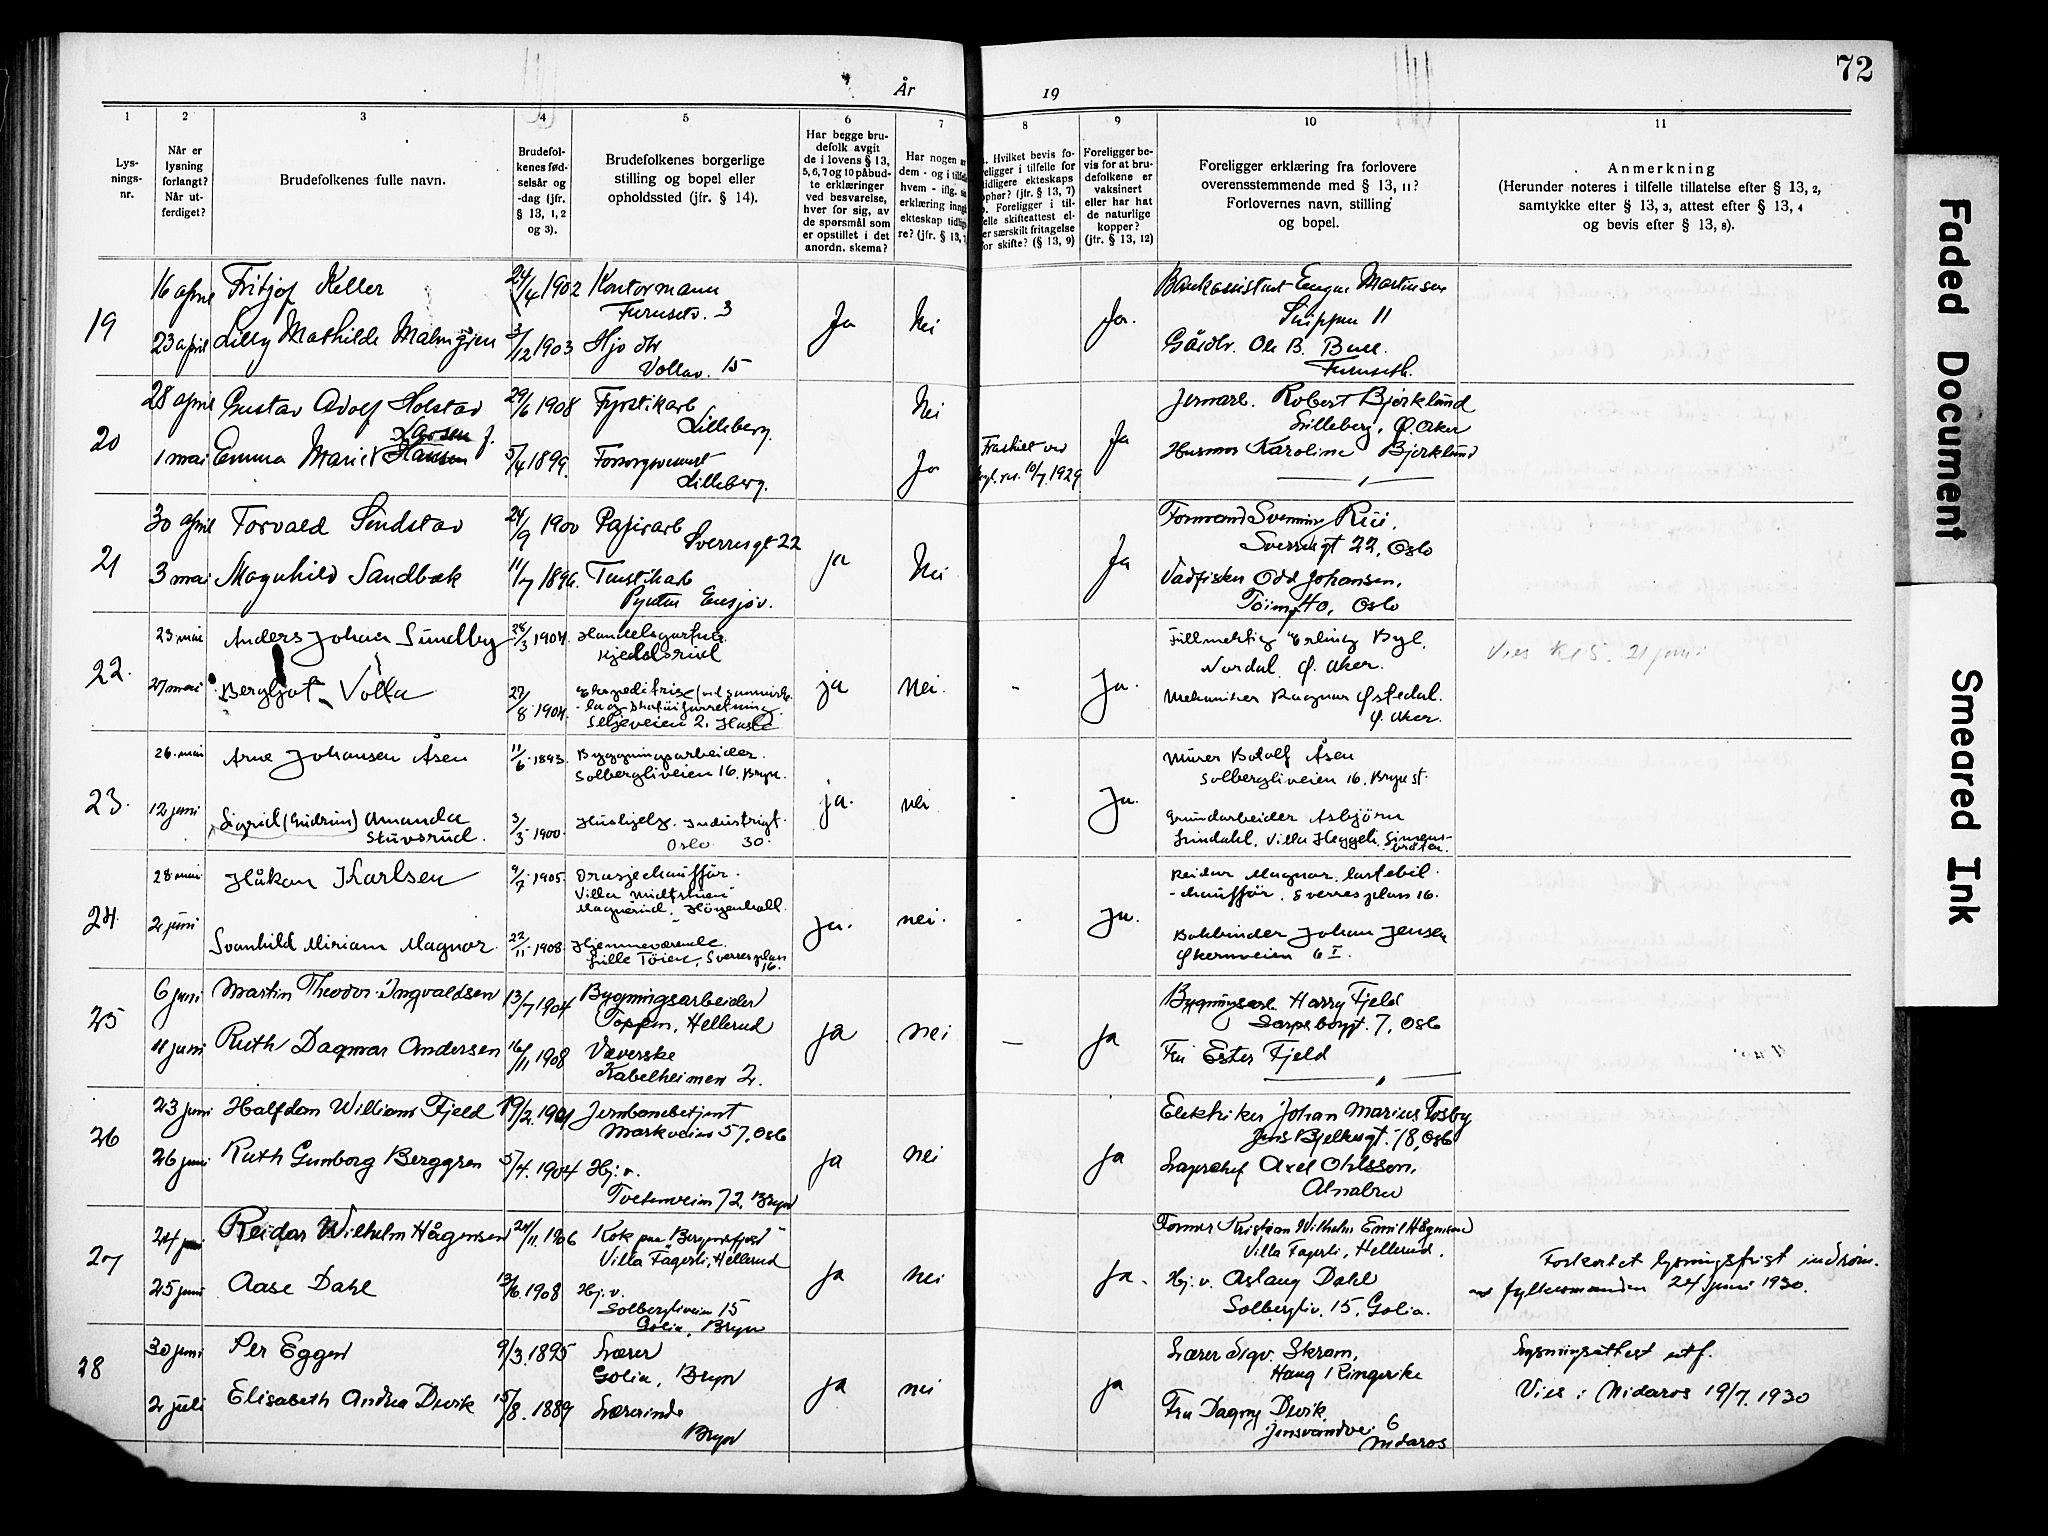 72
År 19
1 2 3 4 5 6 7 8 9 10 11
Lysningsnr.
Når er lysning forlangt? Når utferdiget?
Brudefolkenes fulle navn.
Brudefolkenes fødselsår og -dag (jfr. § 13, 1, 2 og 3).
Brudefolkenes borgerlige stilling og bopel eller opholdssted (jfr. § 14).
Har begge brudefolk avgit de i lovens § 13, 5, 6, 7 og 10 påbudte erklæringer ved besvarelse, hver for sig, av de spørsmål som er opstillet i det anordn. skema?
Har nogen av dem - og i tilfelle hvem - iflg.
erklæring inngått ekteskap tidligere? (jfr. § 13,
Hvilket bevis foreligger i tilfelle for tidligere ekteskaps ophør? (jfr. § 13, 7)
Foreligger i tilfelle skifteattest eller særskilt fritagelse for skifte? (§ 13, 9)
Foreligger bevis for at brudefolkene er vaksinert eller har hat de naturlige kopper? (jfr. § 13, 12)
Foreligger erklæring fra forlovere overensstemmende med § 13, 11? Forlovernes navn, stilling og bopel.
Anmerkning
(Herunder noteres i tilfelle tillatelse efter § 13, 2, samtykke efter § 13, 3, attest efter § 13, 4 og bevis efter § 13, 8).
19
16 april Fritjof Keller 24/4 1902 Kontormann
Furusetv. 3
23 april Lilly Mathilde Malmgren 3/12 1903 Hjv dtr
Vollav. 15
Ja Nei Ja.
Bankassistent Martinsen
11
Gårdbr. Ole B. Bull.
Furuseth.
20
28 april Gustav Adolf Holstad 29/6 1908 Fyrstikarb
Lilleberg.
Larsen f.
1 mai Emma Marie Hansen 5/4 1899.
Lilleberg.
Nei Ja
Fraskilt ved
10/7 1929
Ja
Jernarb. Robert Bjørklund
Lilleberg, Ø. Aker
Husmor Karoline Bjørklund
— " —
21
30 april Torvald Sindstad 24/9 1900 Papirarb
Sverresgt 22
3 mai Magnhild Sandbæk 11/7 1896.
Ensjøv.
ja Nei Ja
Formand Svenning Rui.
Sverresgt 22, Oslo
Odd Johansen.
40, Oslo
22.
23 mai Anders Johan Sundby 28/3 1904.
27 mai Bergljot Volla 27/8 1904.
Seljeveien 2. Hasle
ja nei. - ja.
Fullmektig Erling Bygl.
Nordal Ø. Aker.
Mekaniker Ragnar Østedal.
Ø. Aker.
Vies kl 5. 21 juni
23.
26. mai Arne Johansen Åsen 11/6 1893. Bygningsarbeider.
Solbergliveien 16. Bryn.
12 juni Sigrid (Gudrun) Amanda
Stuvsrud. 3/3 1900. Hushjelp. Industrigt.
Oslo 30.
ja. nei - Ja.
Murer Botolf Åsen
Solbergliveien 16. Bryn st.
Grundarbeider Asbjørn
Lindahl. Villa Heggeli.
24.
28 mai Håkon Karlsen 9/7 1905. Drosjechauffør.
Villa Midtstuen
Høyenhall.
2 juni Svanhild Miriam Magnor. 22/11 1908 Hjemmeværende.
Lille Tøien, Sverres plass
16.
Ja. nei. - Ja.
Reidar Magnor. lastebil-
chauffør. Sverres plass 16.
Bokbinder Johan Jensen
Økernveien 6 I.
25
6 juni Martin Theodor Ingvaldsen 13/7 1904 Bygningsarbeider
Toppen, Hellerud
11 juni Ruth Dagmar Andersen 16/11 1908 Væverske
Kabelheimen 2.
ja nei — ja
Bygningsarb. Harry Fjeld
Sarpsborggt. 7, Oslo
Fru Ester Fjeld
— " —
26
23 juni Halfdan William Fjeld 19/2. 1901 Jernbanebetjent
Markveien 57, Oslo
26 juni Ruth Gunborg Berggren 5/4. 1904 Hj. v.
Tvetenveien 72, Bryn
ja nei ja
Elektriker Johan Marius Fosby
Jens Bjelkesgt. 18, Oslo
Lagerchef Axel Ohlsson,
Alnabru
27
24 juni Reidar Wilhelm Hågensen 24/11. 1906 Kok paa "Bergensfjord"
Villa Fagerli, Hellerud
25 juni Aase Dahl 13/6. 1908 Hj. v.
Solbergliveien 15
Golia, Bryn
ja nei ja.
Former Kristian Wilhelm Emil Hågensen
Villa Fagerli, Hellerud.
Hj. v. Aslaug Dahl
Solbergliv. 15, Golia.
Forkortet lysningsfrist indrøm.
av fylkesmanden 24 juni 1930.
28
30 juni Per Eggen 9/3. 1895 Lærer
Golia, Bryn
2 juli Elisabeth Andrea Devik 15/8. 1889 Lærerinde
Bryn
ja nei ja
Lærer Sigv. Skram,
Haug Ringerike
Fru Dagny Devik,
6
Nidaros
Lysningsattest utf.
Vies i Nidaros 19/7. 1930
Faded Document
Smeared Ink